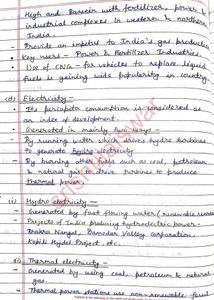 High and Bassein with fertilizer, power &
industrial complexes in western & northern
India.
- Provide an impetus to India's gas production
- Key users - Power & Fertilizer Industries
- Use of CNG - for vehicles to replace liquid
fuels is gaining wide popularity in country.
(d) Electricity -
- The percapita consumption is considered as
an index of development.
- Generated in mainly two ways -
- By running water which drives hydro turbines
to generate hydro electricity
- By burning other fuels such as coal, petroleum
& natural gas to drive turbines to produce
thermal power
(i) Hydro electricity -
- Generated by fast flowing water (renewable resource)
- Projects of India producing hydroelectric power -
Bhakra Nangal, Damodar Valley corporation,
Kopili Hydel Project etc.
(ii) Thermal electricity -
- Generated by using coal, petroleum & natural
gas.
- Thermal power stations use non-renewable fossil